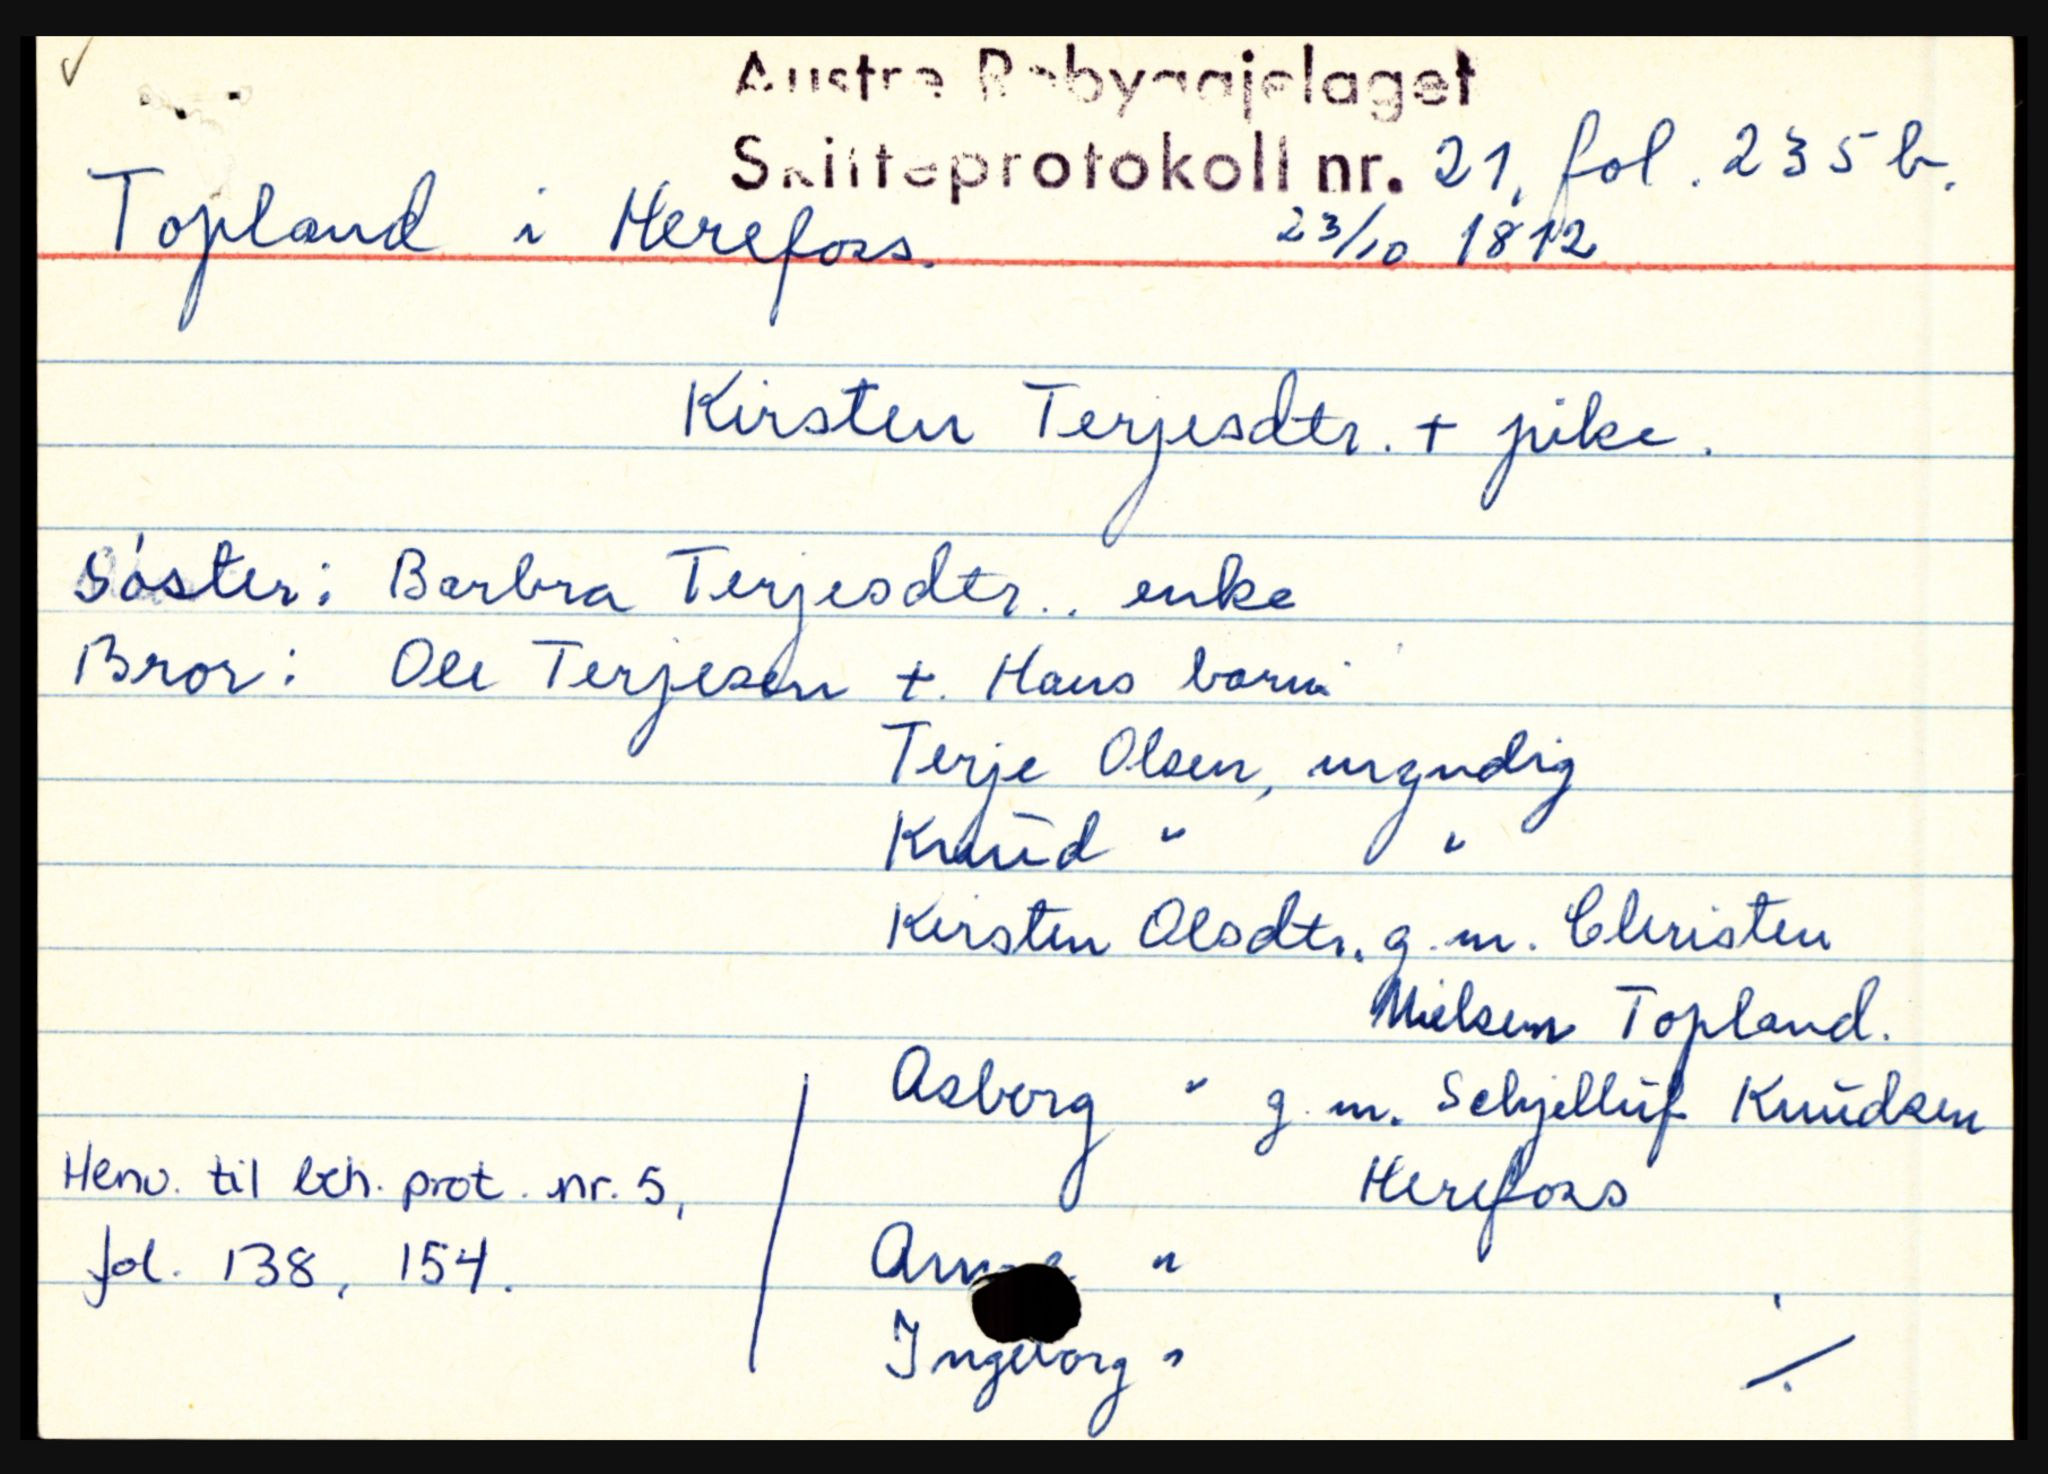 Austre Robyggjelaget
Skifteprotokoll nr. 21, fol. 235 b.
Topland i Herefoss. 23/10 1812
Kirsten Terjesdtr. + pike.
Söster: Barbra Terjesdtr.. enke
Bror: Ole Terjesen +. Hans barn:
Terje Olsen, myndig
Knud " "
Kirsten Olsdtr. g.m. Christen
Nielsen Topland.
Asborg " g.m. Schjelluf Knudsen
Herefoss
Henv. til beh. prot. nr. 5,
fol. 138, 154.
Anne "
Ingeborg "
./.